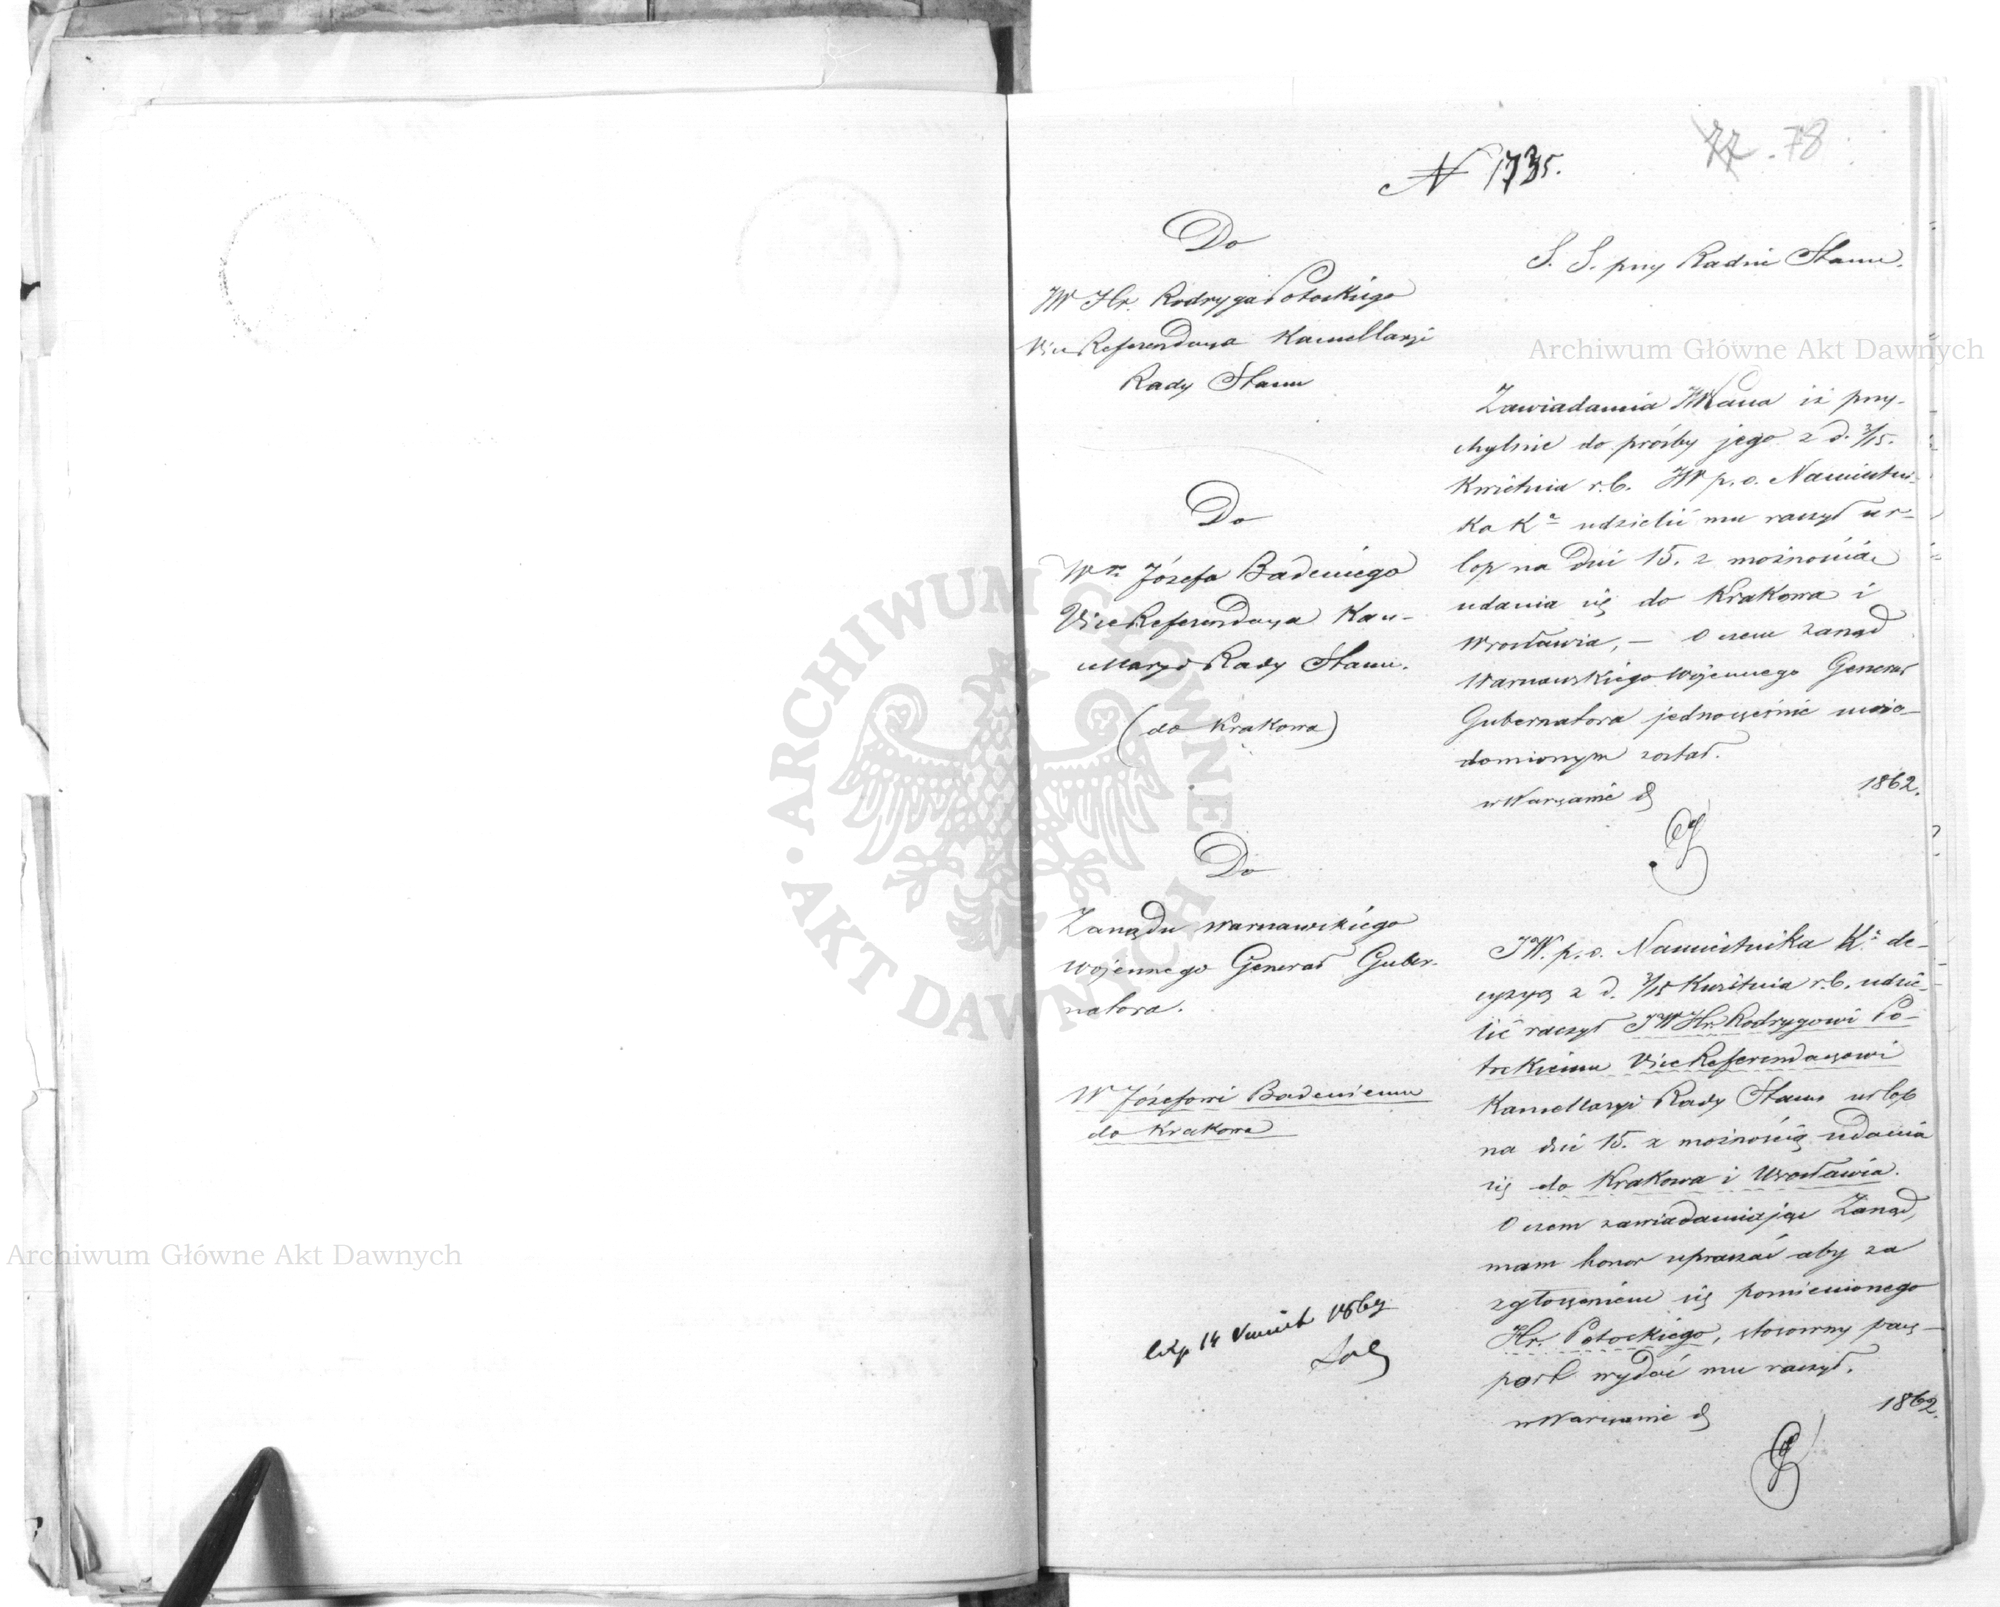 77. 78
N 1735.
Do
JW Hr. Rodryga Potockiego
Vice Referendarza Kancellaryi
Rady Stanu
Do
Wo Józefa Badeniego
Vice Referendarza Kan-
cellaryi Rady Stanu.
(do Krakowa)
S. S. przy Radzie Stanu.
Zawiadamia JWPana iż przy-
chylnie do prośby jego z d. 3/15.
Kwietnia r.b. JW p.o. Namiestni-
ka Ka udzielić mu raczył ur-
lop na dni 15. z możnością
udania się do Krakowa i
Wrocławia, – O czem zarząd
Warszawskiego Wojennego Generał
Gubernatora jednocześnie uwia-
domionym został.
w Warszawie d 1862.
Do
Zarządu Warszawskiego
Wojennego Generał Guber-
natora.
W Józefowi Badeniemu
do Krakowa
JW. p.o. Namiestnika K. de-
cyzyą z d. 3/15 Kwietnia r.b. udzie-
lić raczył JW Hr. Rodrygowi Po-
tockiemu Vice Referendarzowi
Kancellaryi Rady Stanu urlop
na dni 15. z możnością udania
się do Krakowa i Wrocławia.
O czem zawiadamiając Zarząd,
mam honor upraszać aby za
zgłoszeniem się pomienionego
Hr. Potockiego, stosowny pasz-
port wydać mu raczył.
w Warszawie d 1862.
14 1862
Archiwum Główne Akt Dawnych
Archiwum Główne Akt Dawnych
ARCHIWUM GŁÓWNE AKT DAWNYCH